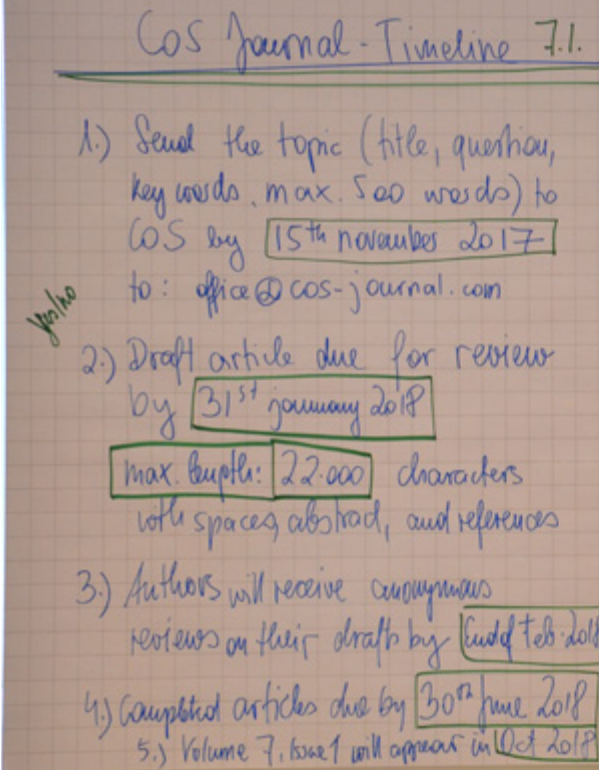 COS Journal - Timeline 7.1.
1.) Send the topic (title, question,
key words, max. 500 words) to
COS by 15th november 2017
to: office@cos-journal.com
yes/no
2.) Draft article due for review
by 31st january 2018
max. length: 22.000 characters
with spaces, abstract, and references
3.) Authors will receive anonymous
reviews on their drafts by End of Feb. 2018
4.) Completed articles due by 30th June 2018
5.) Volume 7, Issue 1 will appear in Oct 2018